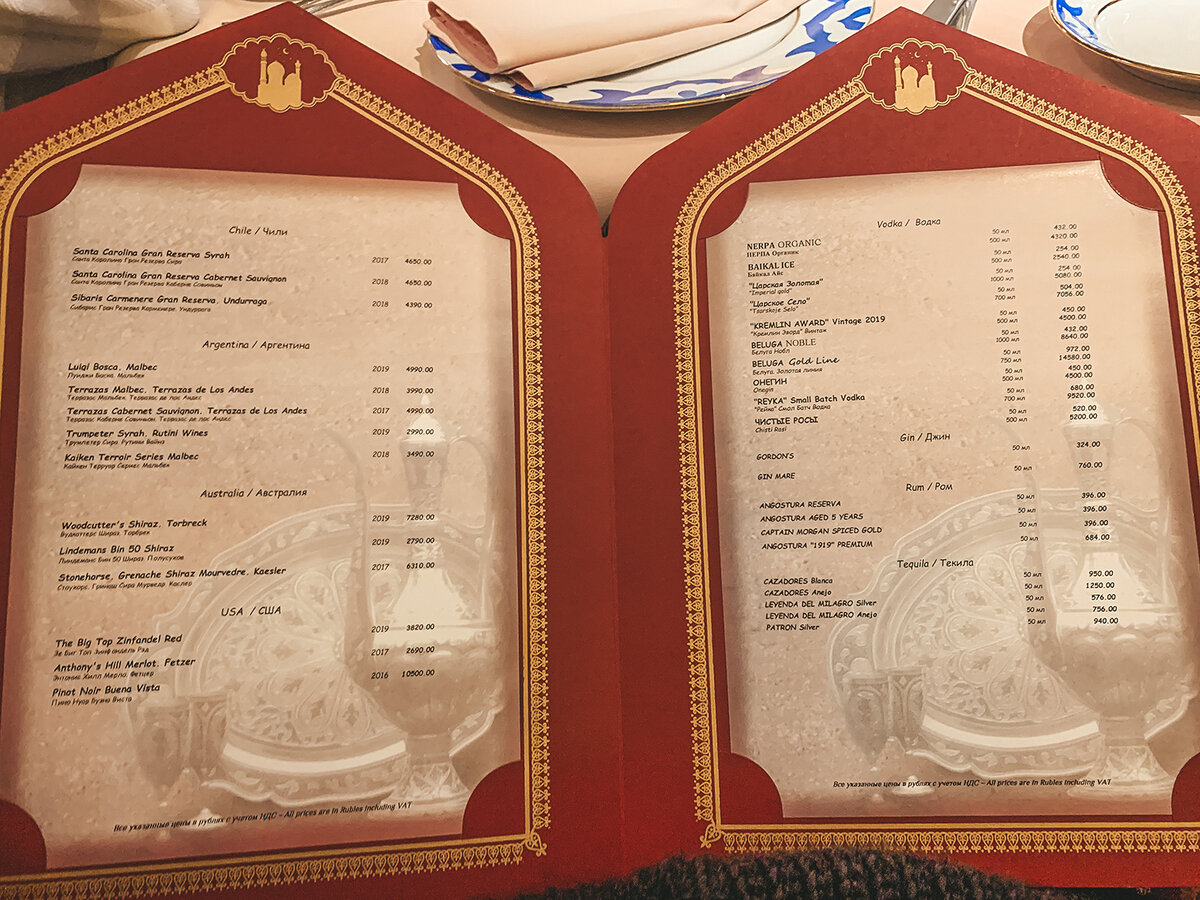 Chile / Чили
Santa Carolina Gran Reserva Syrah 2017 4650.00
Санта Каролина Гран Резерва Сира
Santa Carolina Gran Reserva Cabernet Sauvignon 2018 4650.00
Санта Каролина Гран Резерва Каберне Совиньон
Sibaris Carmenere Gran Reserva, Undurraga 2018 4390.00
Сибарис Гран Резерва Карменере, Ундуррага
Argentina / Аргентина
Luigi Bosca, Malbec 2019 4990.00
Луиджи Боска, Мальбек
Terrazas Malbec, Terrazas de Los Andes 2018 3990.00
Терразас Мальбек, Терразас де лос Андес
Terrazas Cabernet Sauvignon, Terrazas de Los Andes 2017 4990.00
Терразас Каберне Совиньон, Терразас де лос Андес
Trumpeter Syrah, Rutini Wines 2019 2990.00
Трумпетер Сира Рутини Вайнз
Kaiken Terroir Series Malbec 2018 3490.00
Кайкен Терруар Сериес Мальбек
Australia / Австралия
Woodcutter's Shiraz, Torbreck 2019 7280.00
Вудкаттерс Шираз, Торбрек
Lindemans Bin 50 Shiraz 2019 2790.00
Линдеманс Бин 50 Шираз, Полусухое
Stonehorse, Grenache Shiraz Mourvedre, Kaesler 2017 6310.00
Стоухорс, Гринаш Сира Мурведр, Каслер
USA / США
The Big Top Zinfandel Red 2019 3820.00
Зе Биг Топ Зинфандель Рэд
Anthony's Hill Merlot, Fetzer 2017 2690.00
Энтонис Хилл Мерло, Фетцер
Pinot Noir Buena Vista 2016 10500.00
Пино Нуар Буэна Виста
Все указанные цены в рублях с учетом НДС – All prices are in Rubles including VAT
Vodka / Водка
NERPA ORGANIC 50 мл 432.00
НЕРПА Органик 500 мл 4320.00
BAIKAL ICE 50 мл 254.00
Байкал Айс 500 мл 2540.00
"Царская Золотая" 50 мл 254.00
"Imperial gold" 1000 мл 5080.00
"Царское Село" 50 мл 504.00
"Tsarskoje Selo" 700 мл 7056.00
"KREMLIN AWARD" Vintage 2019 50 мл 450.00
"Кремлин Эворд" Винтаж 500 мл 4500.00
BELUGA NOBLE 50 мл 432.00
Белуга Нобл 1000 мл 8640.00
BELUGA Gold Line 50 мл 972.00
Белуга, Золотая линия 750 мл 14580.00
ОНЕГИН 50 мл 450.00
Onegin 500 мл 4500.00
"REYKA" Small Batch Vodka 50 мл 680.00
"Рейка" Смол Батч Водка 700 мл 9520.00
ЧИСТЫЕ РОСЫ 50 мл 520.00
Chisti Rosi 500 мл 5200.00
Gin / Джин
GORDON'S 50 мл 324.00
GIN MARE 50 мл 760.00
Rum / Ром
ANGOSTURA RESERVA 50 мл 396.00
ANGOSTURA AGED 5 YEARS 50 мл 396.00
CAPTAIN MORGAN SPICED GOLD 50 мл 396.00
ANGOSTURA "1919" PREMIUM 50 мл 684.00
Tequila / Текила
CAZADORES Blanca 50 мл 950.00
CAZADORES Anejo 50 мл 1250.00
LEYENDA DEL MILAGRO Silver 50 мл 576.00
LEYENDA DEL MILAGRO Anejo 50 мл 756.00
PATRON Silver 50 мл 940.00
Все указанные цены в рублях с учетом НДС – All prices are in Rubles including VAT